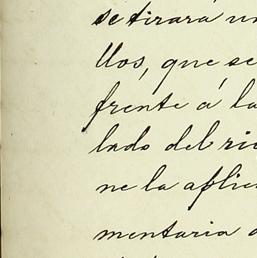 se tirara un
llos, que se
frente á la
lado del rio
ne la aflie
mentaria